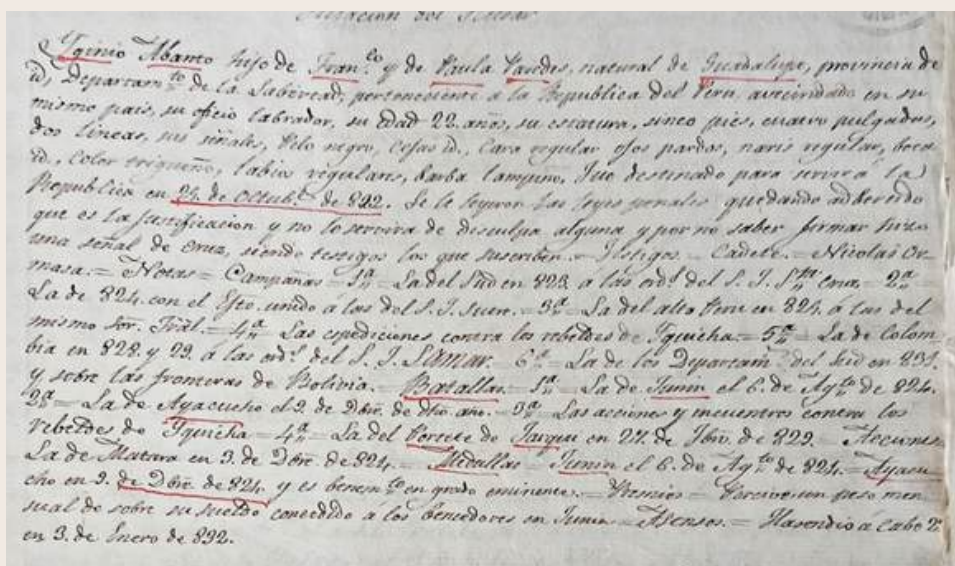 Filiacion del Titular
Yginio Abanto hijo de Fran.co y de Paula Paredes, natural de Guadalupe, provincia de
id, Departam.to de la Libertad, perteneciente a la Republica del Peru, avecindado en su
mismo pais, su oficio labrador, su edad 22. años, su estatura, sinco pies, cuatro pulgadas,
dos lineas, sus señales, Pelo negro, Cejas id., Cara regular ojos pardos, naris regular, boca
id., color trigueño, labios regulares, barba lampiño, Fue destinado para servir á la
Republica en 24. de Octub.e de 822. Se le leyeron las leyes penales quedando adbertido
que es la justificacion y no le servira de desculpa alguna y por no saber firmar hizo
una señal de cruz, siendo testigos los que suscriben. = Testigos = Cadete. = Nicolas Or-
masa. = Notas = Campañas = 1ª La del Sud en 823. á las ord.s del S. J. S.ta cruz = 2ª
La de 824. con el Ejto. unido á las del S. J. Sucre. = 3ª La del alto Peru en 825. á las del
mismo Sor. Jral. = 4ª Las espediciones contra los rebeldes de Yquicha = 5ª La de Colom
bia en 828. y 29. á las ord.s del S. J. Lamar. 6ª La de los Departam.s del Sud en 831.
y sobre las fronteras de Bolivia. = Batallas = 1ª La de Junin el 6. de Ag.to de 824.
2ª = La de Ayacucho el 9. de Dbre. de dho. año. = 3ª Las acciones y encuentros contra los
rebeldes de Yquicha = 4ª La del Portete de Tarqui en 27. de Fbro. de 829. = Acciones
La de Matara en 3. de Dbre. de 824. = Medallas = Junin el 6. de Ag.to de 824. = Ayacu
cho en 9. de Dbre. de 824. y es benem.to en grado eminente. = Premios = Percive un peso men
sual de sobre su sueldo concedido á los bencedores en Junin = Asensos. = Hasendio a Cabo 2º
en 3. de Enero de 832.